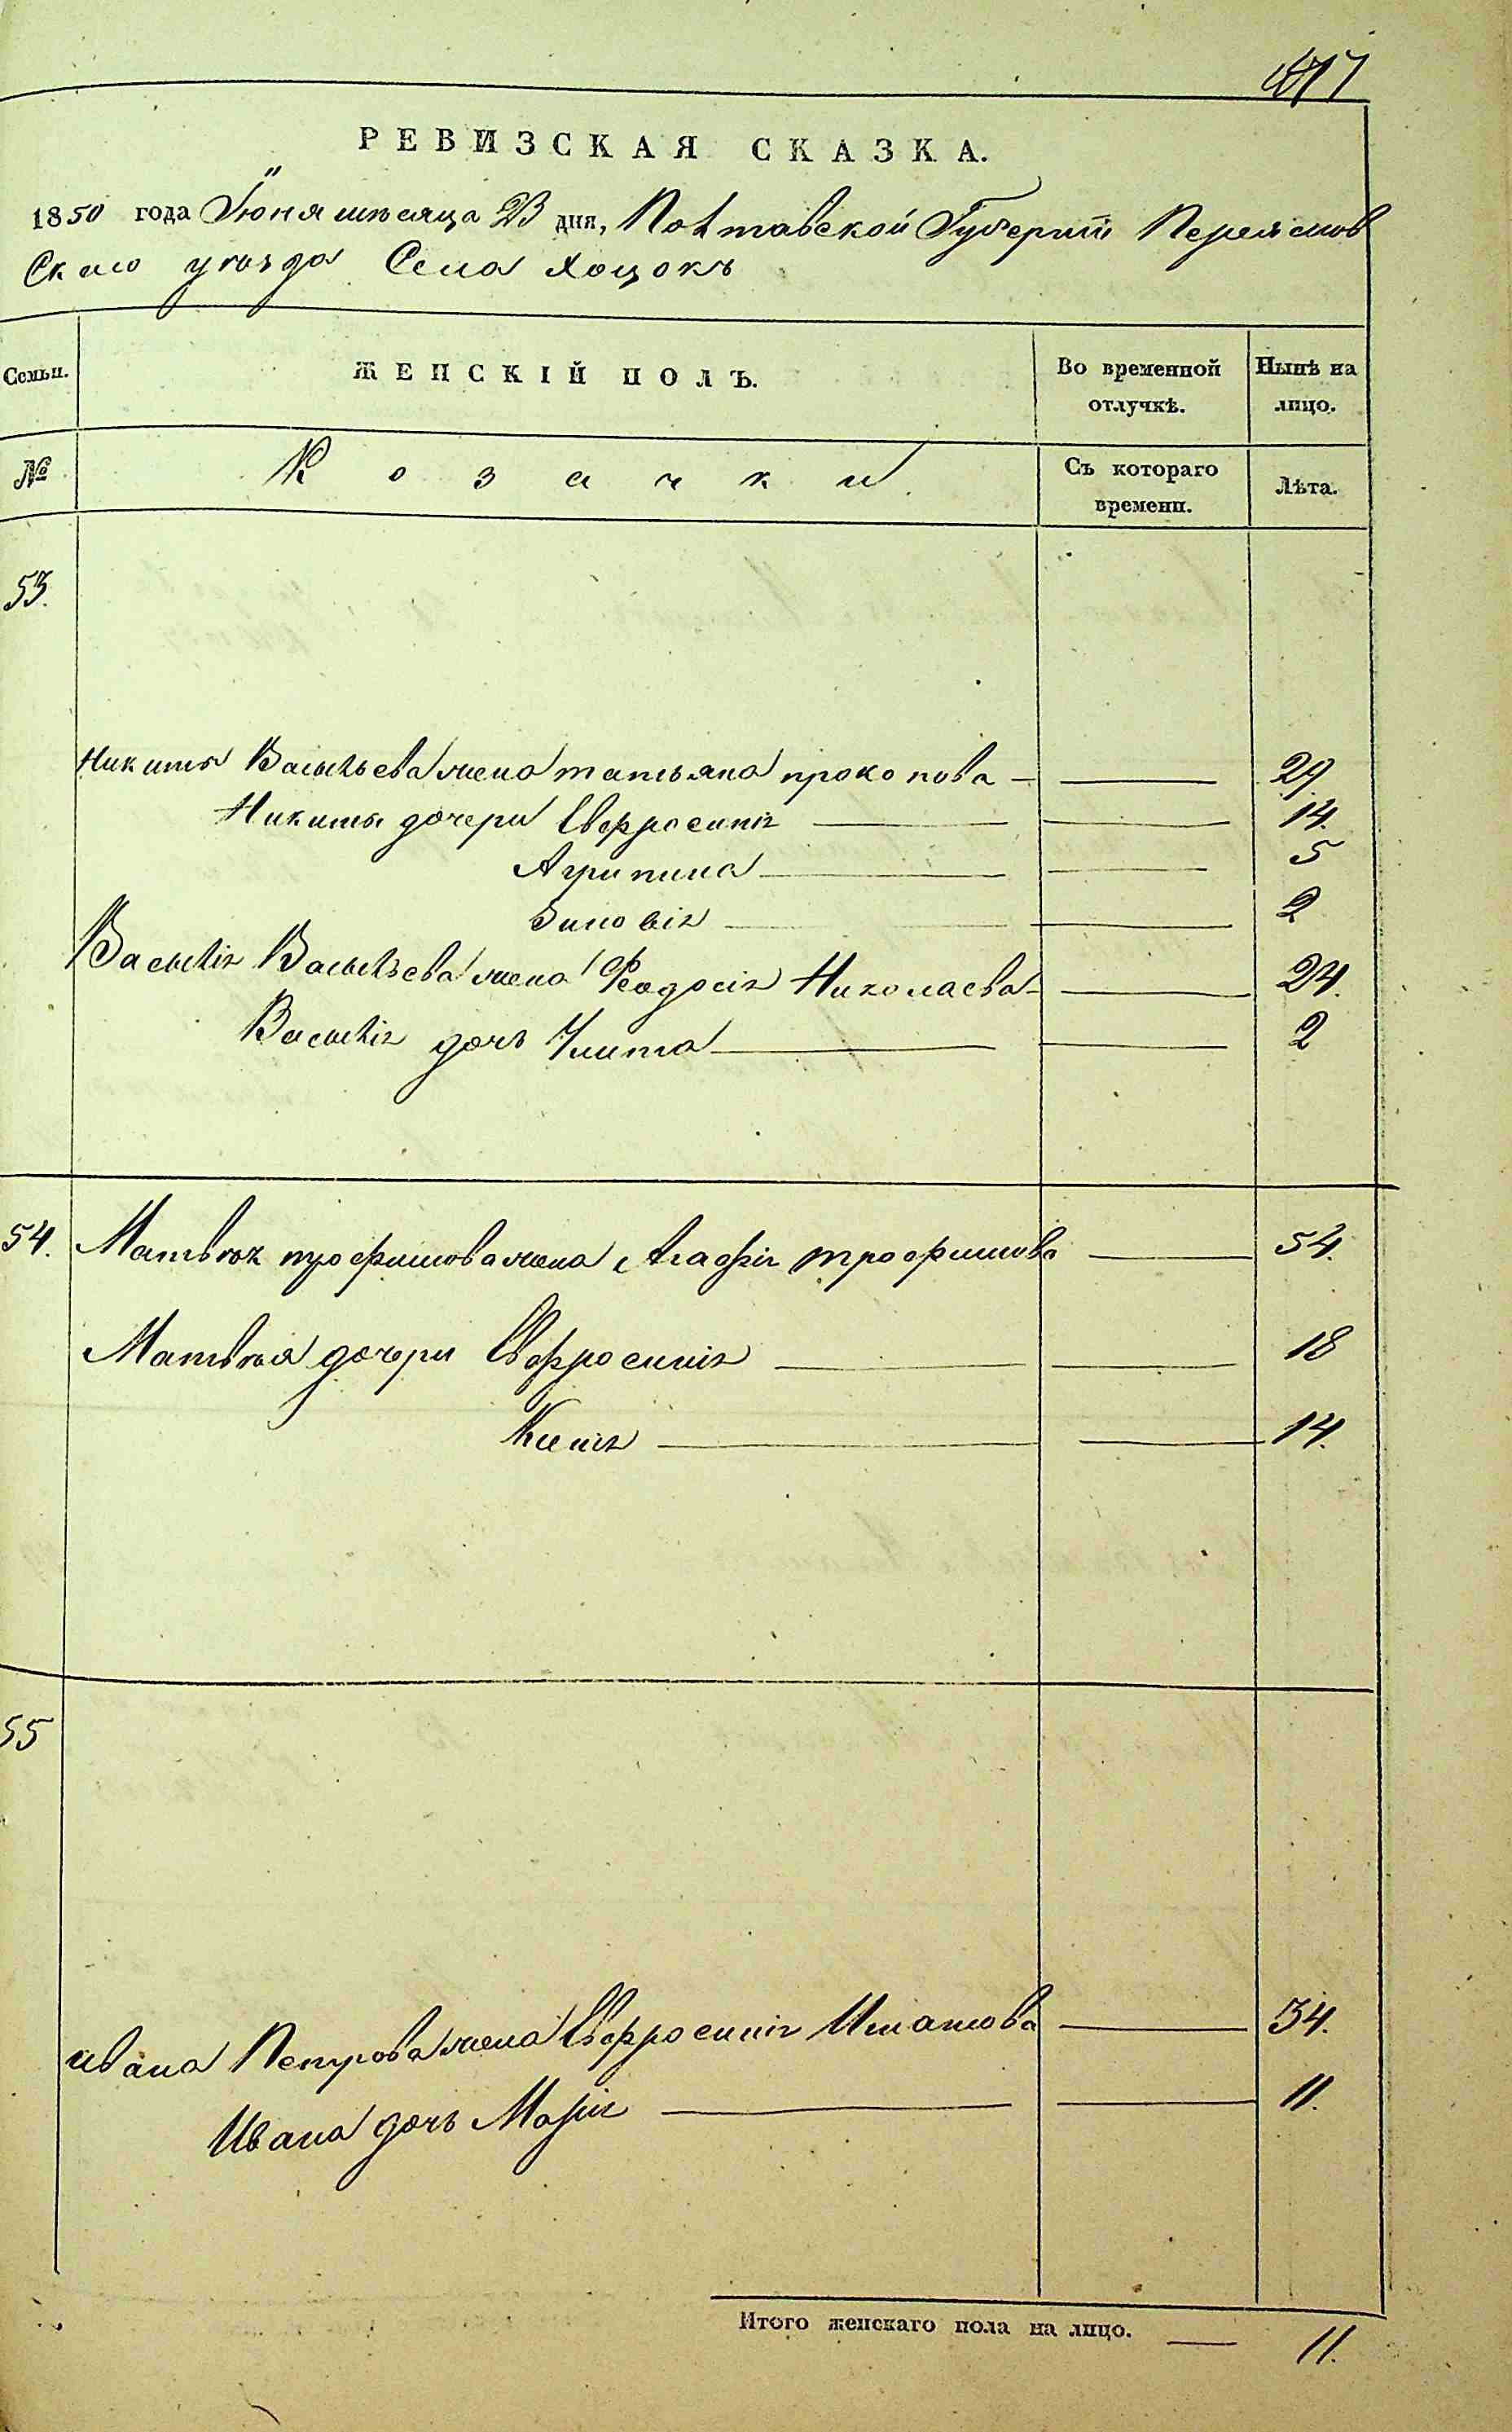 РЕВИЗСКАЯ СКАЗКА.
1850 года Іюня мѣсяца 23 дня, Полтавской Губерніи Переяслов
Скаго уѣзда Села Хоцокъ
Семьи. ЖЕНСКІЙ ПОЛЪ. Во временной отлучкѣ. Нынѣ на лицо.
№ Козачки Съ котораго времени. Лѣта.
53.
Никиты Васильева жена татьяна прокопова 29
Никиты дочери Евфросинія 14.
Агрипина 5
Зиновія 2
Василія Васильева жена Феодосія Николаева 24.
Василія дочь Улита 2
54. Матвѣя трофимова жена Агафія трофимова 54.
Матвѣя дочери Евфросинія 18
Ксенія 14.
55
ивана Петрова жена Евфросинія Игнатова 34.
Ивана дочь Марія 11.
Итого женскаго пола на лицо. 11.